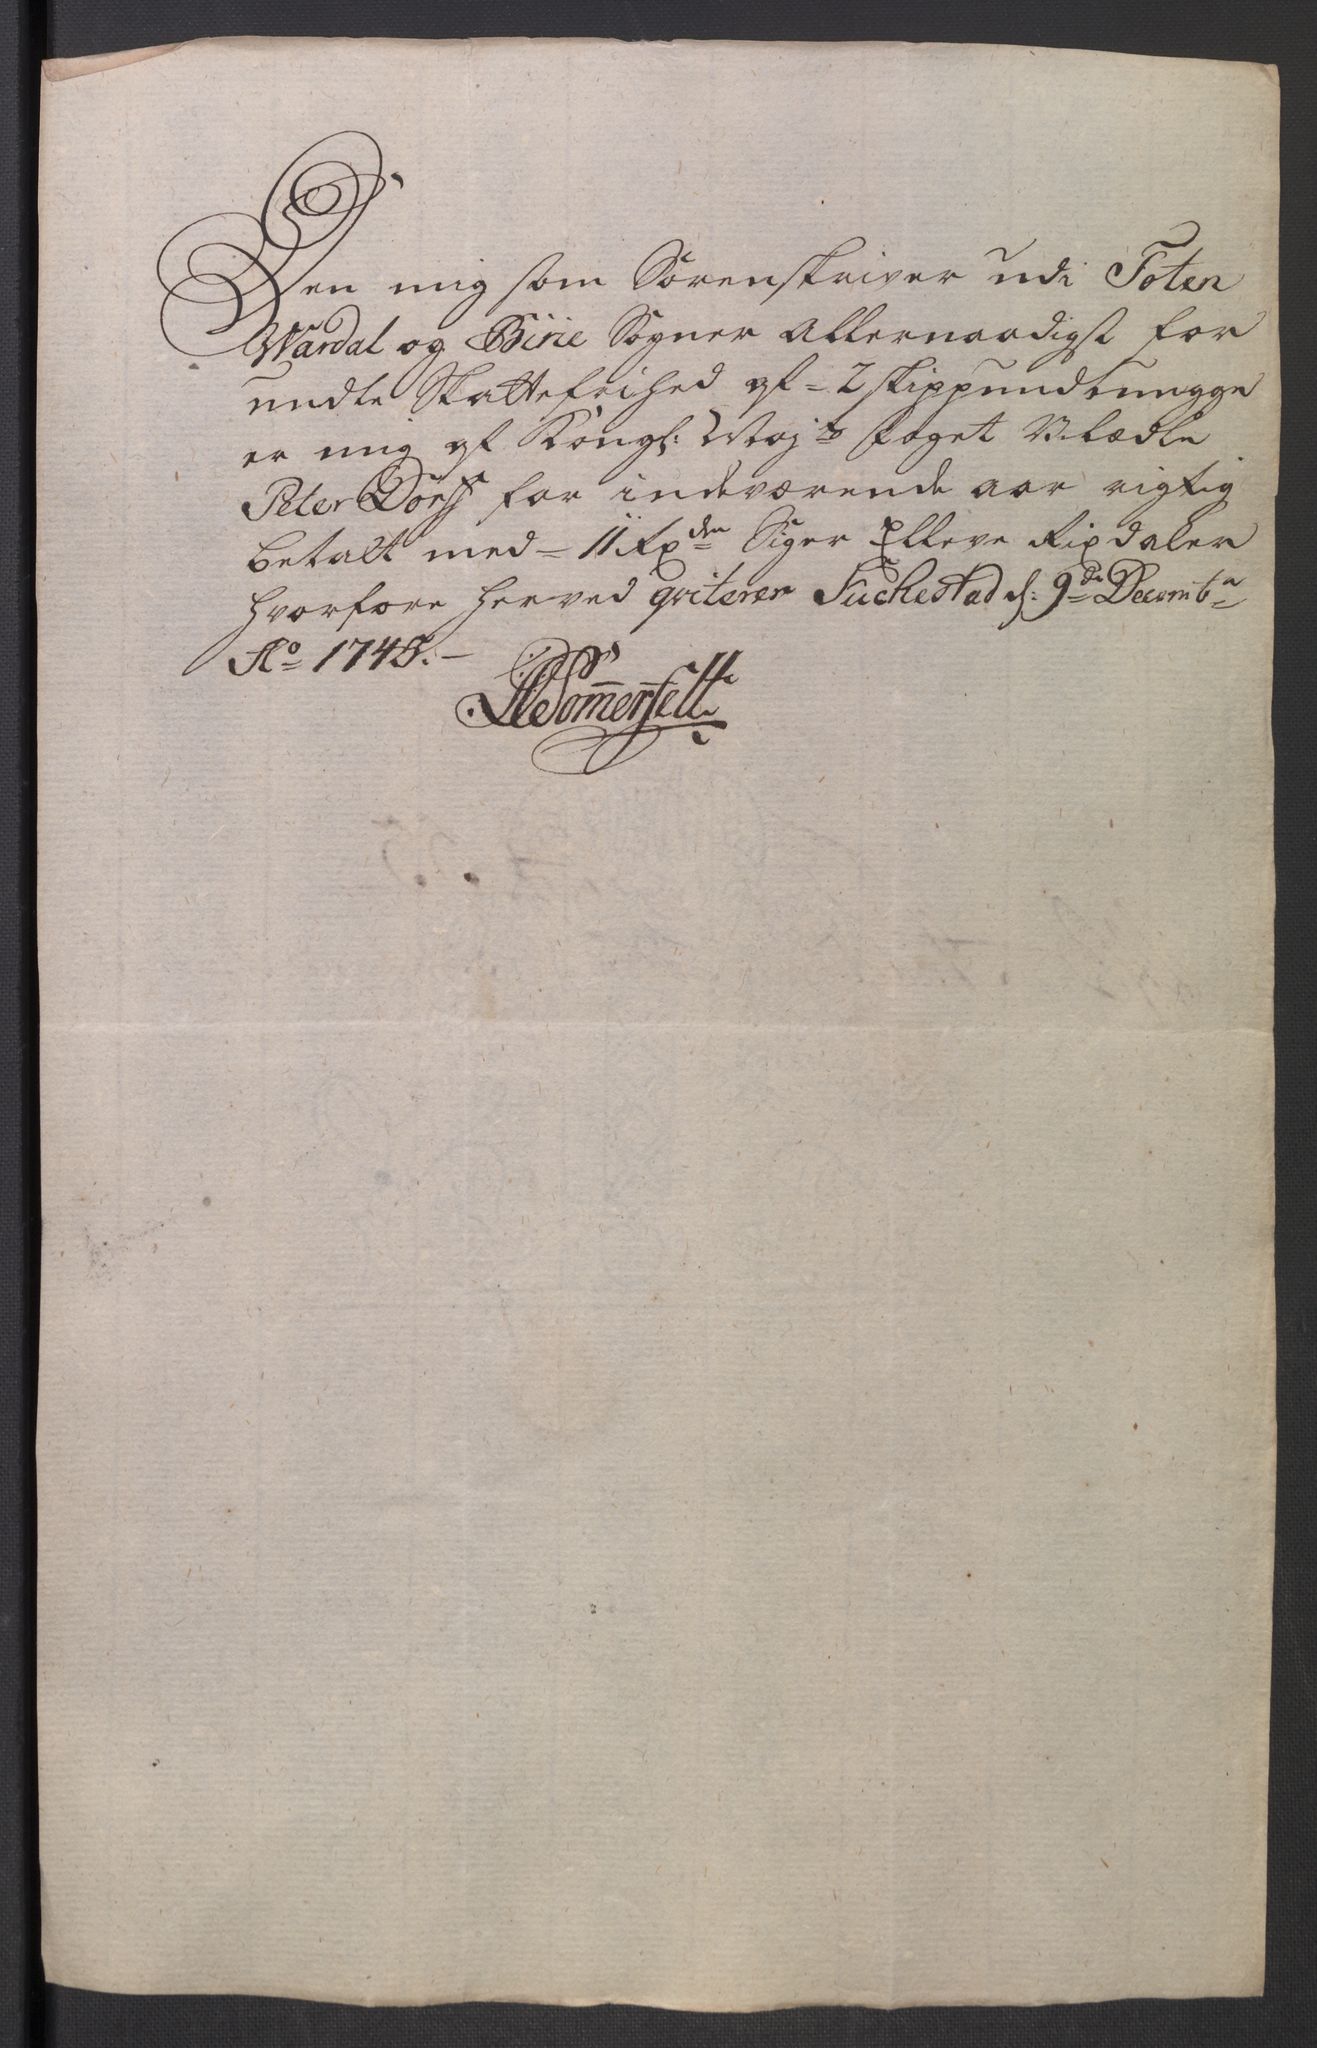 Den mig som Sorenskriver udi Toten
Wardal og Birie Sogner Allernaadigst for
undte Skattefrihed af = 2 skippund tunge
er mig af Kongl: Maj:ts foget Vel ædle
Peter Dorff for indeværende aar rigtig
betalt med = 11 Rx den Siger Elleve Rixdaler
hvorfore herved qviterer Suckestad d: 9de Decemb
Ao 1745. —
Sommerfelt